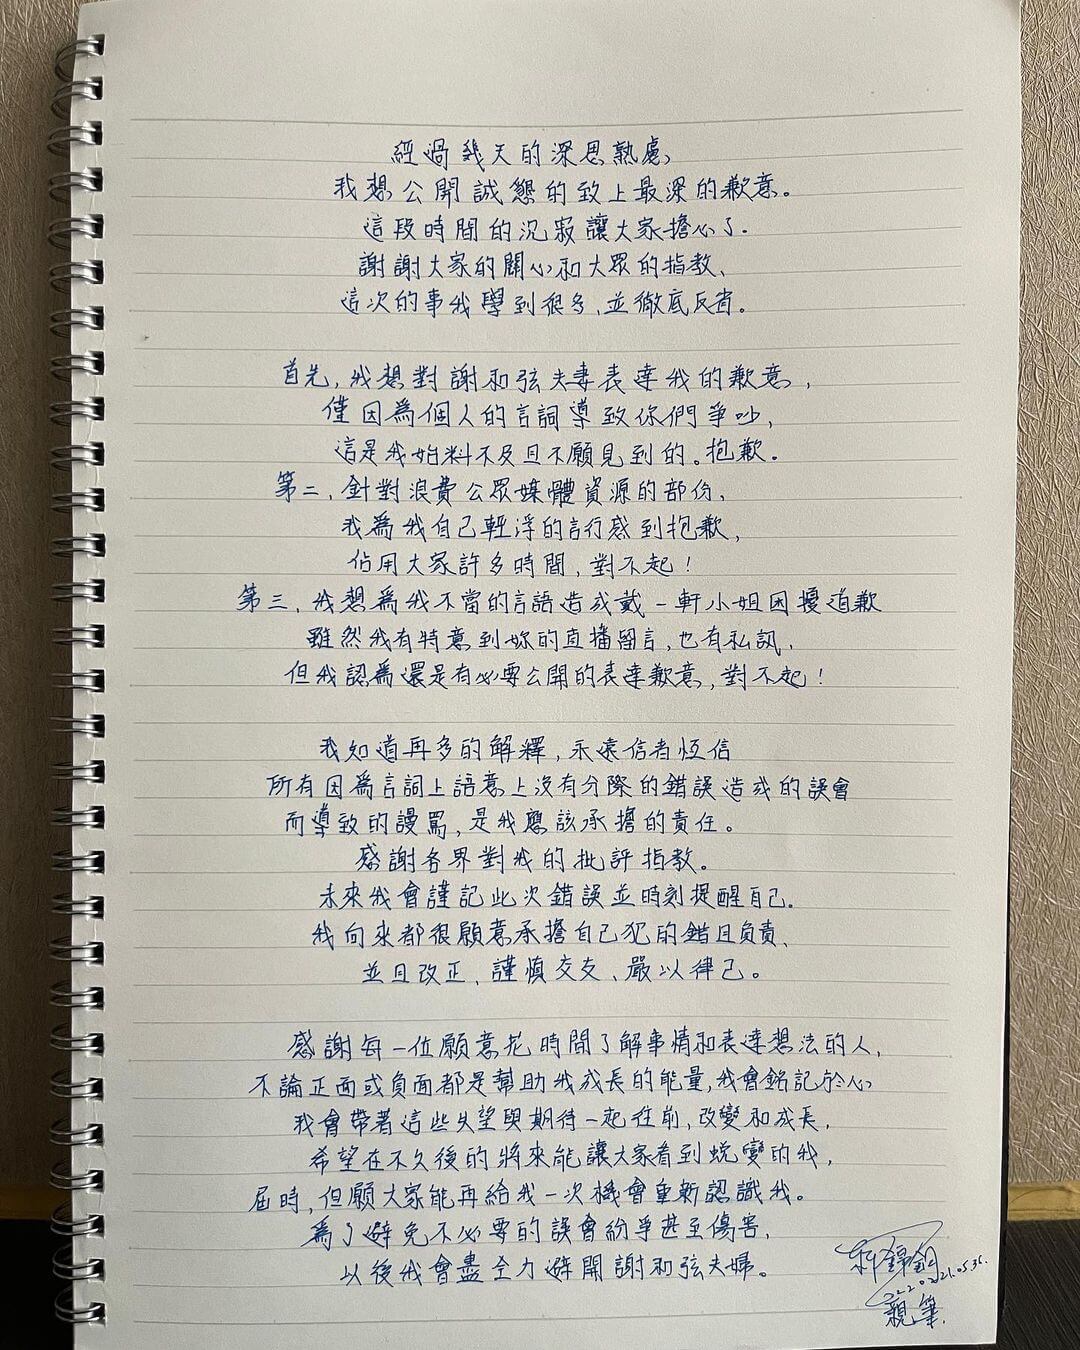 經過幾天的深思熟慮、
我想公開誠懇的致上最深的歉意。
這段時間的沉寂讓大家擔心了.
謝謝大家的關心和大眾的指教、
這次的事我學到很多、並徹底反省。
首先,我想對謝和弦夫妻表達我的歉意,
僅因為個人的言詞導致你們爭吵,
這是我始料不及且不願見到的。抱歉.
第二、針對浪費公眾媒體資源的部份、
我為我自己輕浮的言行感到抱歉,
佔用大家許多時間,對不起!
第三、我想為我不當的言語造成戴一軒小姐困擾道歉
雖然我有特意到妳的直播留言,也有私訊、
但我認為還是有必要公開的表達歉意,對不起!
我知道再多的解釋,永遠信者恆信
所有因為言詞上語意上沒有分際的錯誤造成的誤會
而導致的謾罵,是我應該承擔的責任。
感謝各界對我的批評指教。
未來我會謹記此次錯誤並時刻提醒自己.
我向來都很願意承擔自己犯的錯且負責、
並且改正、謹慎交友、嚴以律己。
感謝每一位願意花時間了解事情和表達想法的人,
不論正面或負面都是幫助我成長的能量,我會銘記於心
我會帶著這些失望與期待一起往前,改變和成長,
希望在不久後的將來能讓大家看到蛻變的我,
屆時,但願大家能再給我一次機會重新認識我。
為了避免不必要的誤會紛爭甚至傷害、
以後我會盡全力避開謝和弦夫婦。
親筆.